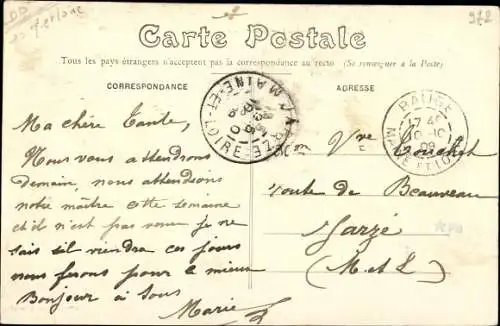 Carte Postale
Tous les pays étrangers n'acceptent pas la correspondance au recto (Se renseigner à la Poste)
CORRESPONDANCE
ADRESSE
Ma chère Tante,
Nous vous attendrons
demain, nous attendions
notre maître cette semaine
et il n'est pas venu je ne
sais s'il viendra ces jours
nous ferons pour le mieux
Bonjour à tous
Marie
JARZE
MAINE-ET-LOIRE
BAUGE
17 40
10-10
09
MAINE-ET-LOIRE
Vve
route de Beauveau
Jarzé
(M-et L)